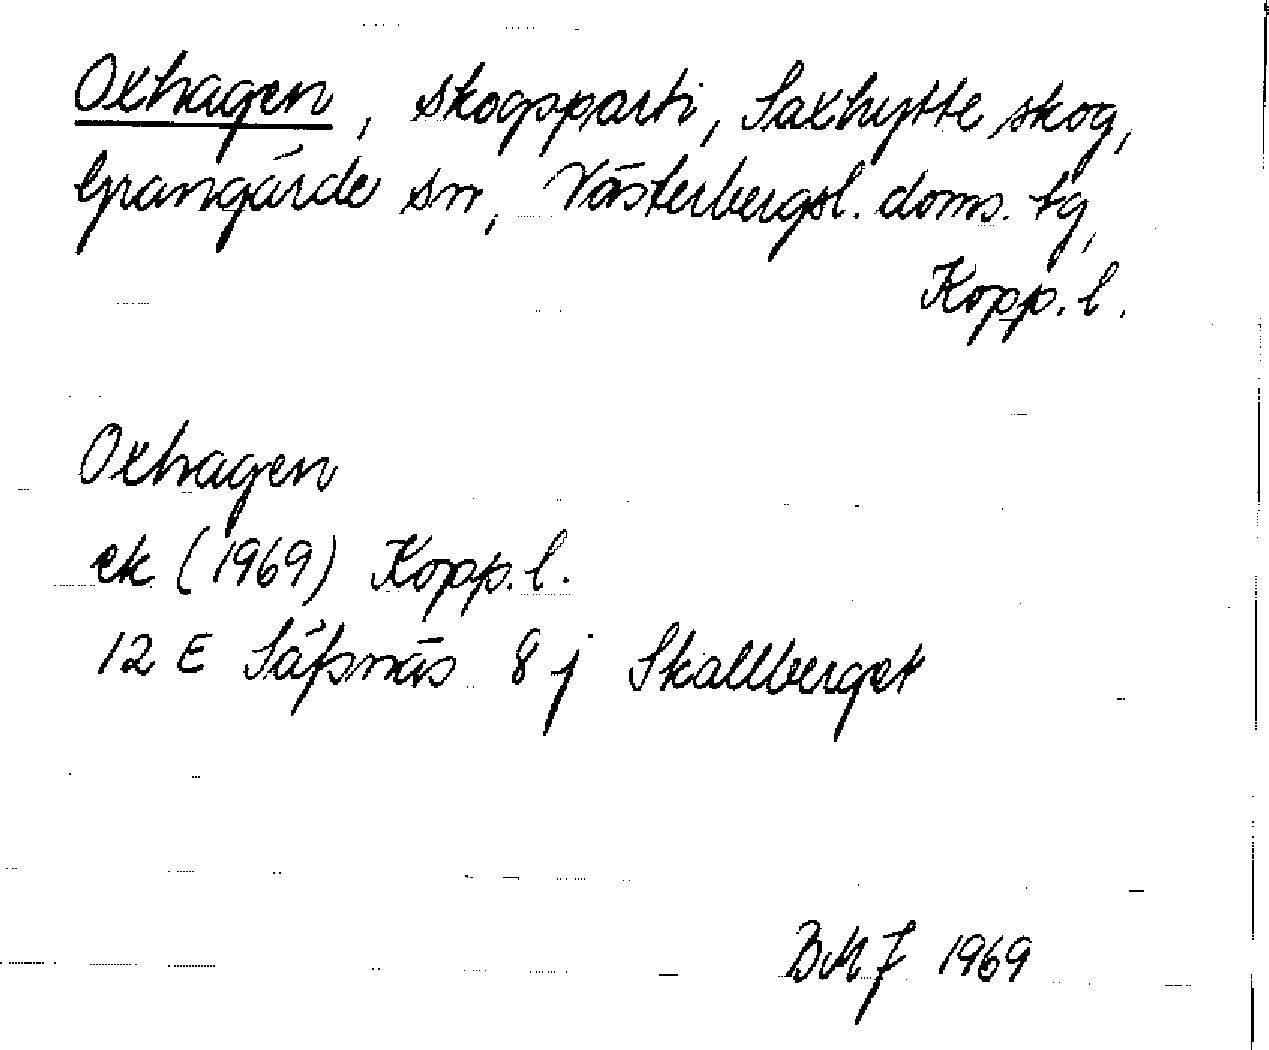 Oxhagen, skogsparti, Saxhytte skog,
Grangärde sn, Västerbergsl. doms. tg,
Kopp. l.
Oxhagen
ek (1969) Kopp. l.
12 E Säfsnäs 8 j Skallberget
BMJ 1969